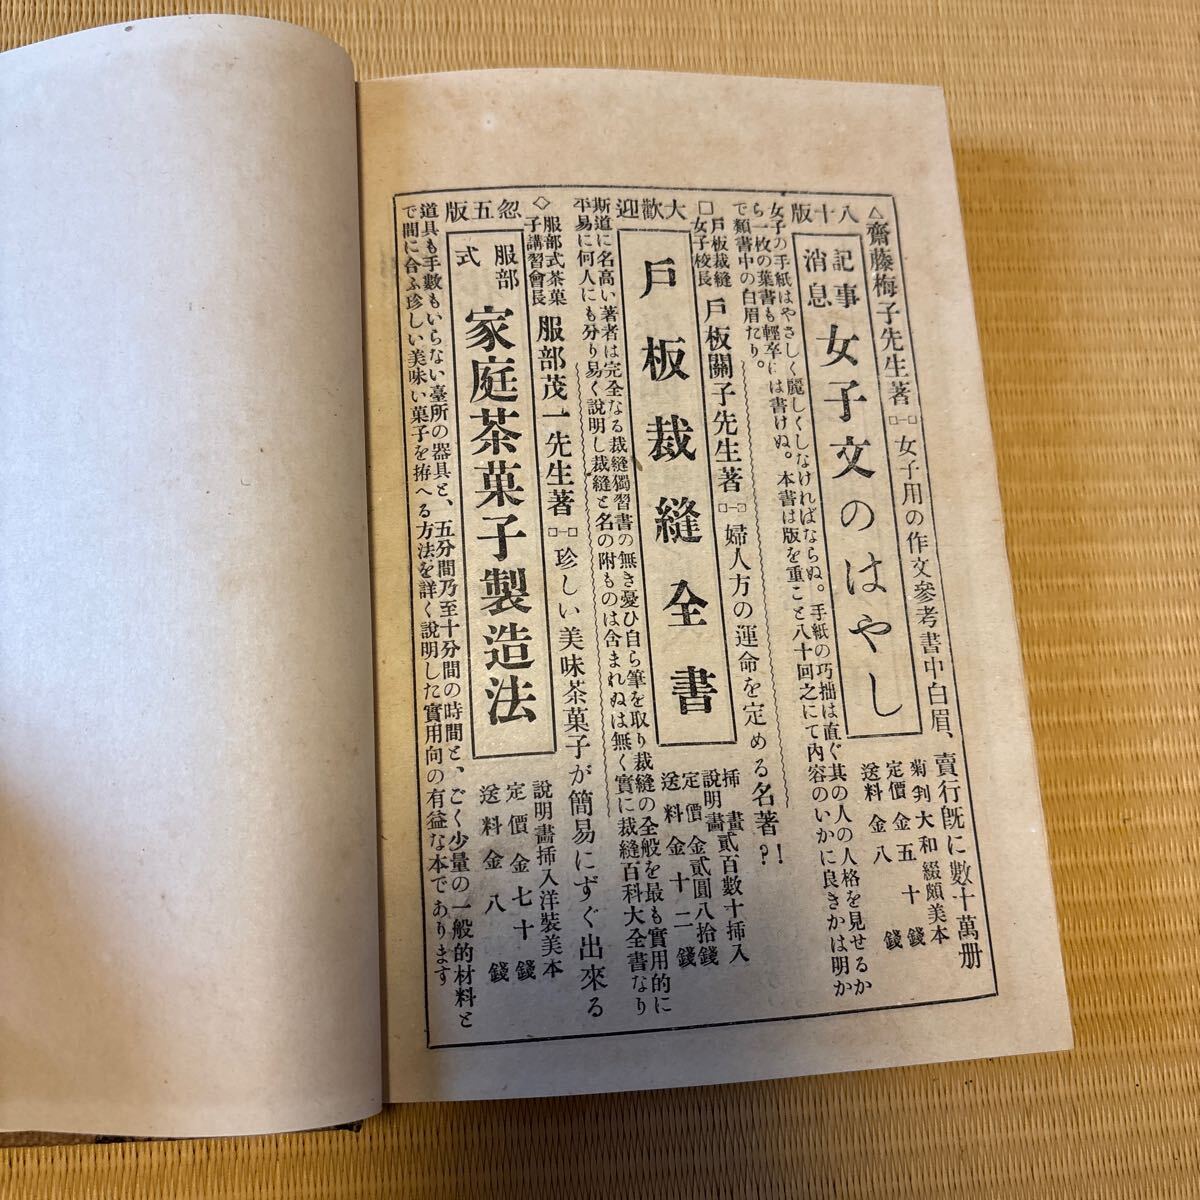 八十版
△齋藤梅子先生著□-□女子用の作文參考書中白眉、賣行旣に數十萬册
記事
消息
女子文のはやし
菊判大和綴頗美本
定價金五十錢
送料金八錢
女子の手紙はやさしく麗しくしなければならぬ。手紙の巧拙は直ぐ其の人の人格を見せるか
ら一枚の葉書も輕卒には書けぬ。本書は版を重こと八十回之にて内容のいかに良きかは明か
で類書中の白眉たり。
大歡迎
□戶板裁縫
女子校長
戶板關子先生著□-□婦人方の運命を定める名著?!
戶板裁縫全書
挿畫貳百數十挿入
說明畫
定價金貳圓八拾錢
送料金十二錢
斯道に名高い著者は完全なる裁縫獨習書の無き憂ひ自ら筆を取り裁縫の全般を最も實用的に
平易に何人にも分り易く說明し裁縫と名の附ものは含まれぬは無く實に裁縫百科大全書なり
忽五版
◇服部式茶菓
子講習會長
服部茂一先生著□-□珍しい美味茶菓子が簡易にずぐ出來る
服部
式
家庭茶菓子製造法
說明畫挿入洋裝美本
定價金七十錢
送料金八錢
道具も手數もいらない臺所の器具と、五分間乃至十分間の時間と、ごく少量の一般的材料と
で間に合ふ珍しい美味い菓子を拵へる方法を詳く說明した實用向の有益な本であります